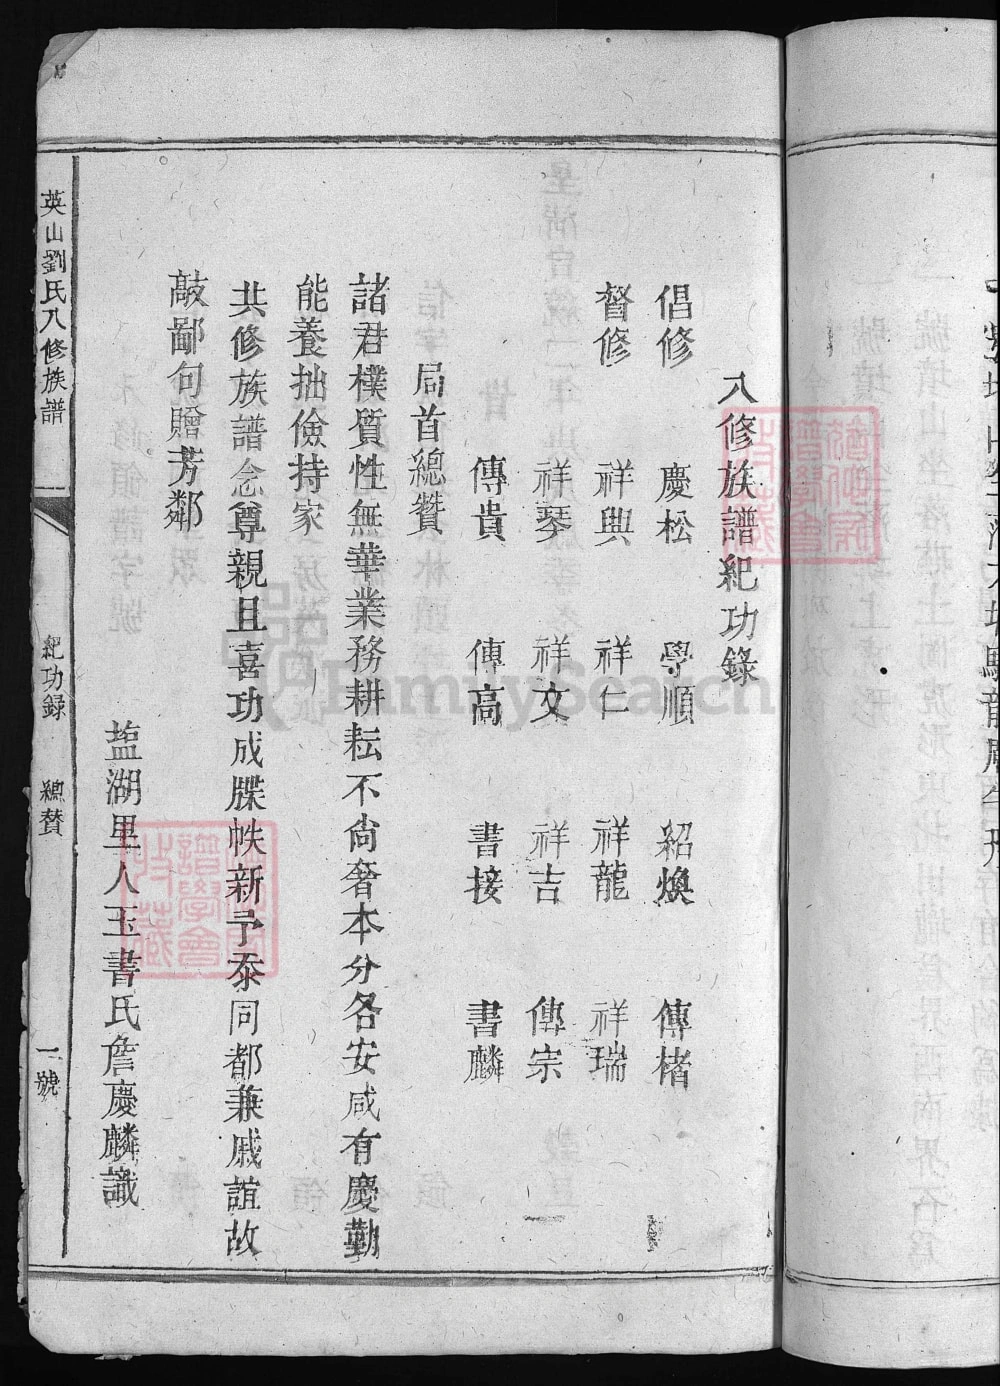 八修族譜紀功錄
倡修 慶松 學順 紹煥 傳楮
督修 祥興 祥仁 祥龍 祥瑞
祥琴 祥文 祥吉 傳宗
傳貴 傳高 書接 書麟
局首總贊
諸君樸質性無華業務耕耘不尙奢本分各安咸有慶勤
能養拙儉持家
共修族譜念尊親且喜功成牒帙新予忝同都兼戚誼故
敲鄙句贈芳鄰
盐湖里人玉書氏詹慶麟識
英山劉氏八修族譜 紀功録 總贊 一號
FamilySearch